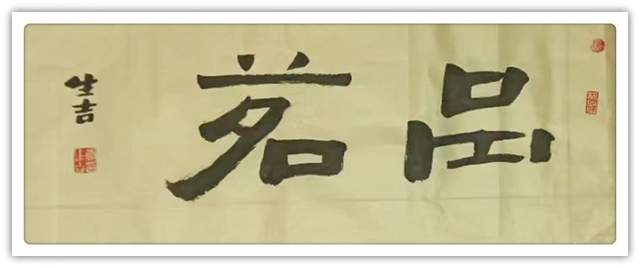 品茗
生吉